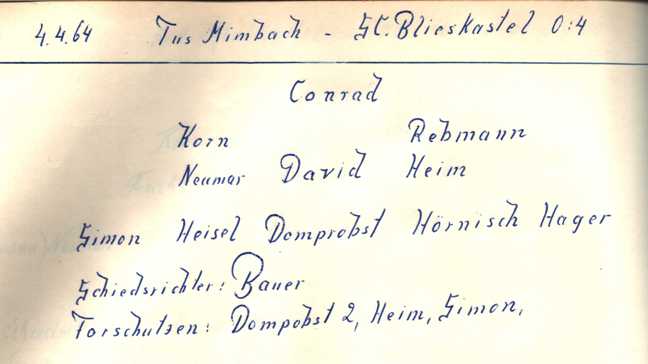 4.4.64 Tus Mimbach - SC. Blieskastel 0:4
Conrad
Korn Rebmann
Neumar David Heim
Simon Heisel Domprobst Hörnisch Hager
Schiedsrichter: Bauer
Torschutzen: Dompobst 2, Heim, Simon,